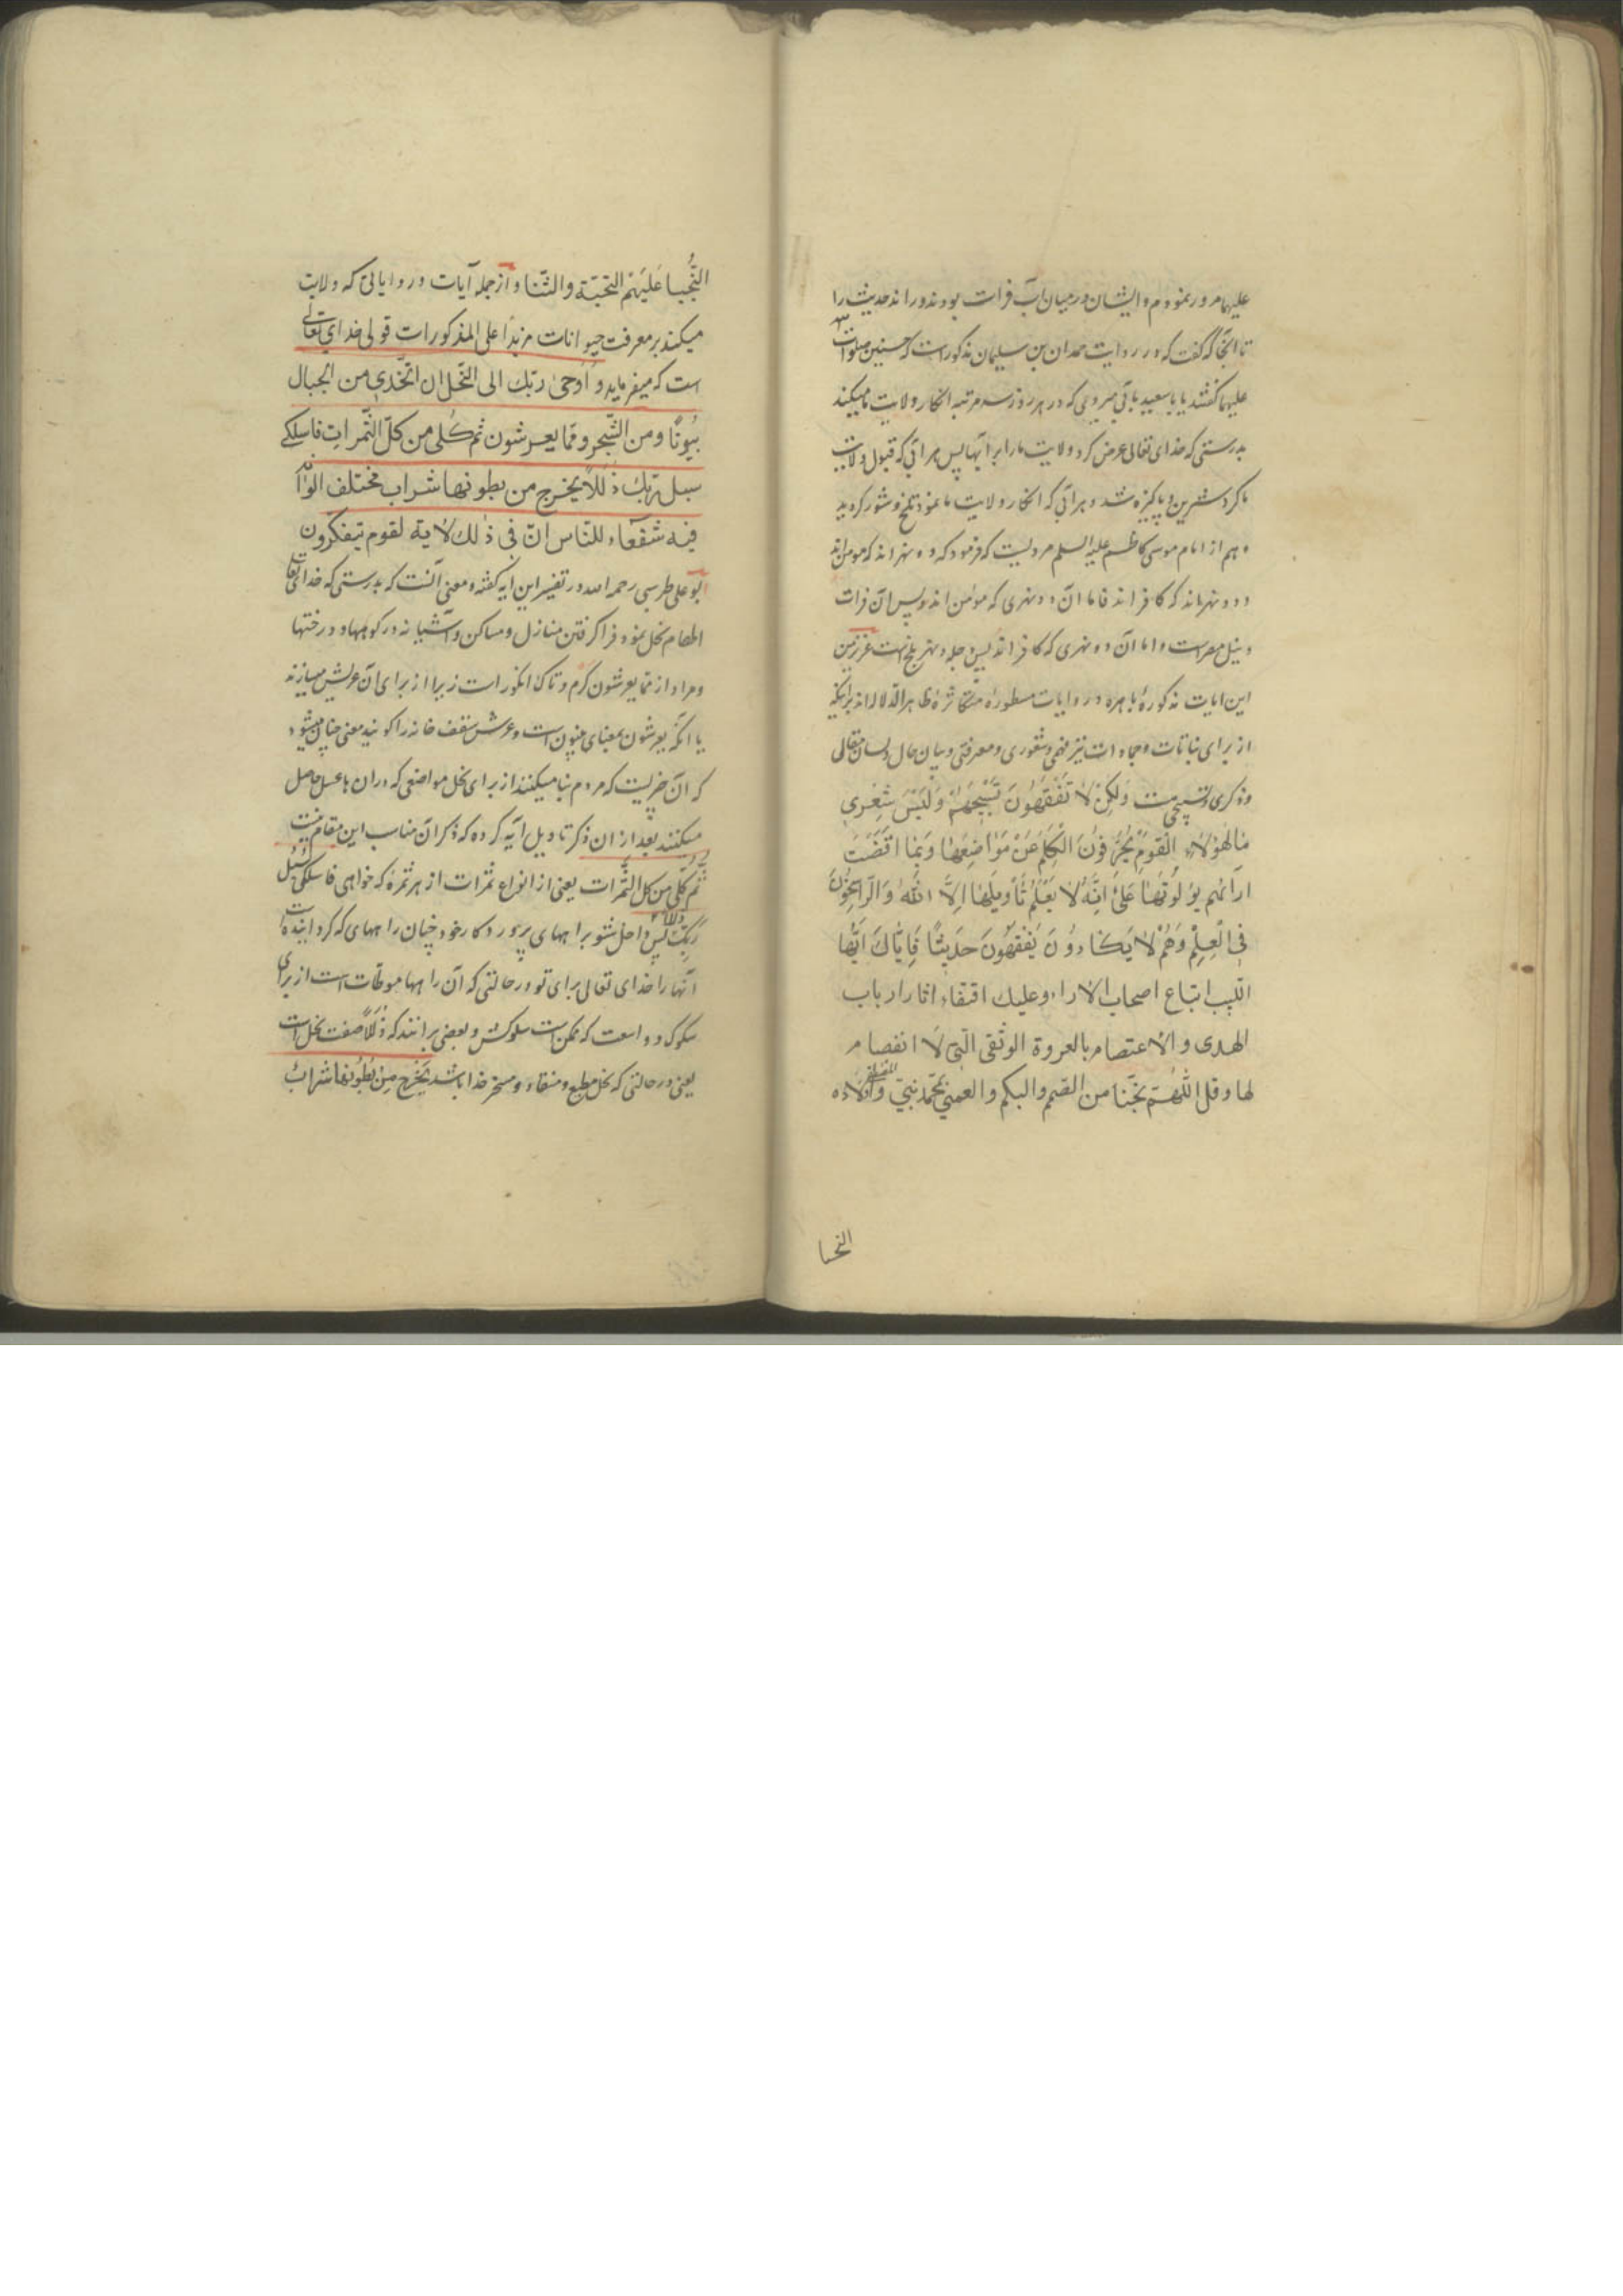 علیهما مرور نمودم و ایشان در میان آب فرات بودند و راند حدیث را
تا انجا که گفت که در روایت حمدان بن سلیمان مذکور است که حسنین صلوات
علیهما گفتند یا با سعید باقی میروی که در هر روز سه مرتبه انکار ولایت ما میکند
بدرستی که خدای تعالی عرض کرد ولایت ما را بر آبها پس هر آبی که قبول ولایت
ما کرد شیرین و پاکیزه شد و هر آبی که انکار ولایت ما نمود تلخ و شور کردید
و هم از امام موسی کاظم علیه السلم مرویست که فرمود که دو نهراند که مومن اند
و دو نهراند که کافراند فاما ان دو نهری که مؤمن اند پس ان فرات
و نیل مصر است و اما آن دو نهری که کافراند پس دجله و نهر بلخ است عزیز من
این ایات مذکورهٔ باهره و روایات مسطورهٔ متکاثرهٔ ظاهر الدلاله اند بر انکه
از برای نباتات و جمادات نیز فهمی و شعوری و معرفتی و بیان حال و لسان مقالی
و ذکری و تسبیحی هست وَلکِنْ لا تَفْقَهُونَ تَسْبِیحَهُمْ وَلَیْسَ شِعْرِی
مَا لِهٰؤُلاءِ الْقَوْمِ یُحَرِّفُونَ الْکَلِمَ عَنْ مَوَاضِعِهَا وَبِمَا اقْتَضَتْ
ارَائُهم یُؤَوِّلُونَهَا عَلیٰ اَنَّهُ لا یَعْلَمُ تَأْوِیلَهَا اِلاَّ اللّٰهُ وَالرَّاسِخُونَ
فِی الْعِلْمِ وَهُمْ لا یَکَادُونَ یَفْقَهُونَ حَدِیثًا فَاِیَّاكَ اَیُّهَا
اللبیب اتباع اصحاب الاراء وعلیك اقتفاء اثار ارباب
الهدی والاعتصام بالعروة الوثقی الّتی لا انفصام
لها وقل اللّهمّ نجّنا من الصّمم والبکم والعمی بحمّد نبیّ وآلاده
النجبا
النُّجبا عَلَیهِمُ التحیّة والثّنا و از جمله آیات و روایاتی که ولایت
میکند بر معرفت حیوانات مزیداً علی المذکورات قول خدای تعالی
است که میفرماید وَ اَوحیٰ ربّك الی النّحل ان اتّخذی من الجبال
بُیُوتًا ومن الشّجر وممّا یعرشون ثم کُلی من کلّ الثّمرات فاسلکی
سبل ربّك ذُلُلاً یخرج من بطونها شراب مختلف الوانه
فیه شفاء للنّاس انّ فی ذٰلك لایة لقوم یتفکّرون
بو علی طبرسی رحمه الله در تفسیر این آیه کفته و معنی آنست که بدرستی که خدای تعالی
الهام نحل نمود فرا کرفتن منازل و مساکن و آشیانه در کوهها و درختها
و مراد از مما یعرشون کرم و تاك انکور است زیرا از برای آن عریش میسازند
یا انکه یعرشون بمعنای یبنون است و عرش سقف خانه را کویند معنی چنان میشود
که ان خیریست که مردم بنا میکنند از برای نحل مواضعی که در ان ها عسل حاصل
میکنند بعد از ان ذکر تاویل ایه کرده که ذکر ان مناسب این مقام نیست
ثُمَّ کُلِی مِن کُلِّ الثَّمَرات یعنی از انواع ثمرات از هر ثمرهٔ که خواهی فاسلکی سُبُلَ
رَبِّكِ ذُلُلاً پس داخل شو براههای پرورد کار خود چنان راههای که کردانیده است
آنها را خدای تعالی برای تو در حالتی که آن راهها موطّات است از برای
سلوک و واسعت که ممکن است سلوکش و بعضی برانند که ذُلُلاً صفت نحل است
یعنی در حالتی که نحل مطیع و منقاد و مسخر خدا باشد یَخْرُجُ مِنْ بُطُونِها شرابٌ